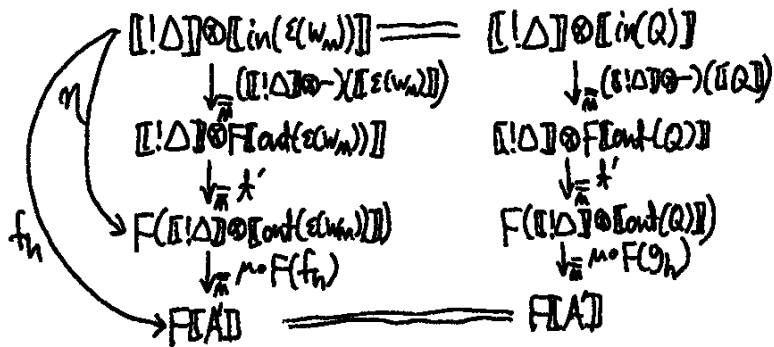 ⟦!Δ⟧⊗⟦in(ε(W_m))⟧ ═══ ⟦!Δ⟧⊗⟦in(Q)⟧
η ↓_m̄ (⟦!Δ⟧⊗-)(⟦ε(W_m)⟧) ↓_m̄ (⟦!Δ⟧⊗-)(⟦Q⟧)
⟦!Δ⟧⊗F⟦out(ε(W_m))⟧ ⟦!Δ⟧⊗F⟦out(Q)⟧
↓_m̄ t' ↓_m̄ t'
f_h F(⟦!Δ⟧⊗⟦out(ε(W_m))⟧) F(⟦!Δ⟧⊗⟦out(Q)⟧)
↓_m̄ μ∘F(f_h) ↓_m̄ μ∘F(g_h)
F⟦A'⟧ ═══ F⟦A'⟧